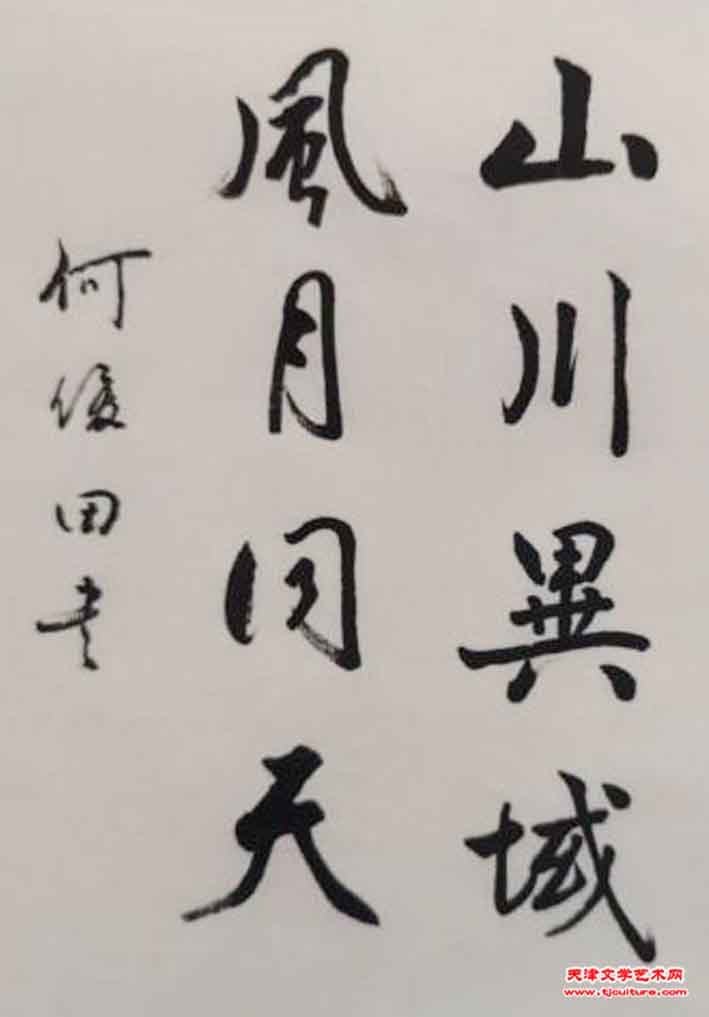 山川異域
風月同天
何俊田书
天津文学艺术网
www.tjculture.com